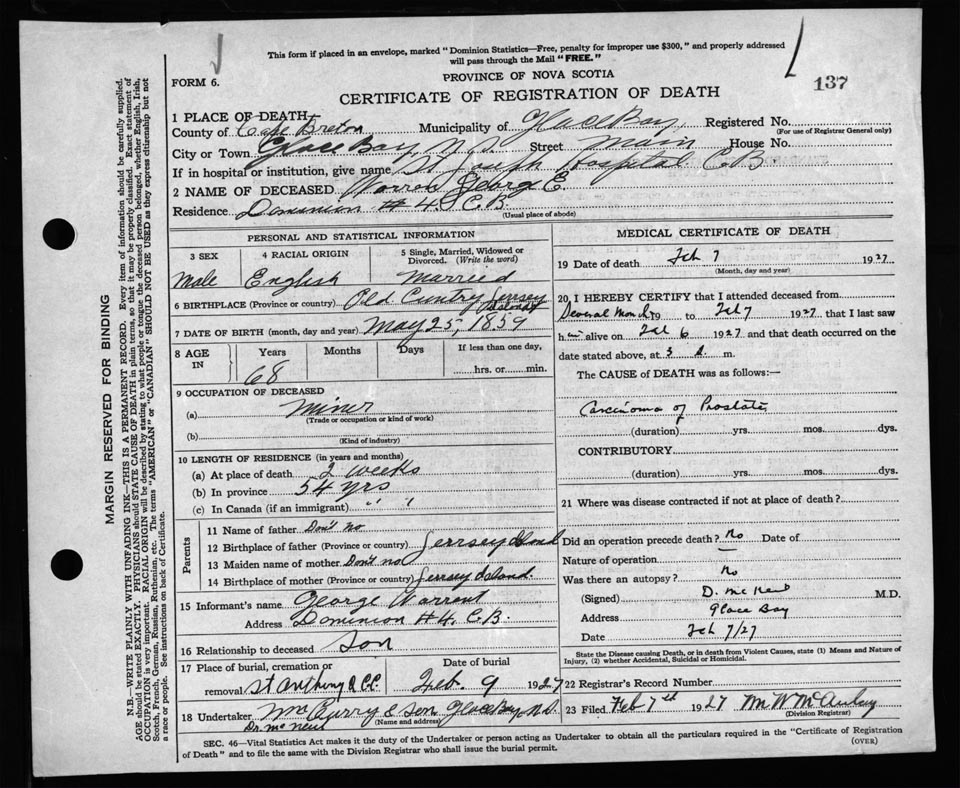 This form if placed in an envelope, marked "Dominion Statistics—Free, penalty for improper use $300," and properly addressed
will pass through the Mail "FREE."
FORM 6.
PROVINCE OF NOVA SCOTIA
137
CERTIFICATE OF REGISTRATION OF DEATH
1 PLACE OF DEATH
County of Cape Breton Municipality of Glace Bay Registered No.
(For use of Registrar General only)
City or Town Glace Bay, N.S. Street Main House No.
If in hospital or institution, give name St Joseph Hospital C.B
2 NAME OF DECEASED George E.
Residence Dominion # 4. C.B.
(Usual place of abode)
PERSONAL AND STATISTICAL INFORMATION
3 SEX 4 RACIAL ORIGIN 5 Single, Married, Widowed or
Divorced. (Write the word)
Male English Married
6 BIRTHPLACE (Province or country) Old Cuntry Jerrsey Island
7 DATE OF BIRTH (month, day and year) May 25, 1859
8 AGE IN Years Months Days If less than one day,
68 hrs. or min.
9 OCCUPATION OF DECEASED
(a) Miner
(Trade or occupation or kind of work)
(b)
(Kind of industry)
10 LENGTH OF RESIDENCE (in years and months)
(a) At place of death 2 weeks
(b) In province 54 yrs
(c) In Canada (if an immigrant) " " "
Parents
11 Name of father Don't no
12 Birthplace of father (Province or country) Jerrsey Island
13 Maiden name of mother Don't no
14 Birthplace of mother (Province or country) Jerrsey Island.
15 Informant's name George Warrent
Address Dominion #4, C.B.
16 Relationship to deceased Son
17 Place of burial, cremation or Date of burial
removal St Anthony R.C.C. Feb. 9 1927
18 Undertaker Curry & Son Glace Bay, N.S.
(Name and address)
Dr. McNeil
MEDICAL CERTIFICATE OF DEATH
19 Date of death Feb 7 1927
(Month, day and year)
20 I HEREBY CERTIFY that I attended deceased from
Several Months 19 to Feb 7 1927 that I last saw
him alive on Feb 6 1927 and that death occurred on the
date stated above, at 3 a. m.
The CAUSE of DEATH was as follows:—
Carcinoma of Prostate
(duration) yrs. mos. dys.
CONTRIBUTORY
(duration) yrs. mos. dys.
21 Where was disease contracted if not at place of death?
Did an operation precede death? No Date of
Nature of operation
Was there an autopsy? No
(Signed) D. McNeil M.D.
Address Glace Bay
Date Feb 7/27
State the Disease causing Death, or in death from Violent Causes, state (1) Means and Nature of
Injury, (2) whether Accidental, Suicidal or Homicidal.
22 Registrar's Record Number
23 Filed Feb 7th 1927
(Division Registrar)
SEC. 46—Vital Statistics Act makes it the duty of the Undertaker or person acting as Undertaker to obtain all the particulars required in the "Certificate of Registration
of Death" and to file the same with the Division Registrar who shall issue the burial permit. (OVER)
MARGIN RESERVED FOR BINDING
N.B.—WRITE PLAINLY WITH UNFADING INK—THIS IS A PERMANENT RECORD. Every item of information should be carefully supplied.
AGE should be stated EXACTLY. PHYSICIANS should STATE CAUSE OF DEATH in plain terms, so that it may be properly classified. Exact statement of
OCCUPATION is very important. RACIAL ORIGIN will be described by stating to what people or tongue the deceased person belonged, whether English, Irish,
Scotch, French, German, Russian, Ruthenian, etc. The terms "AMERICAN" or "CANADIAN" SHOULD NOT BE USED as they express citizenship but not
a race or people. See instructions on back of Certificate.